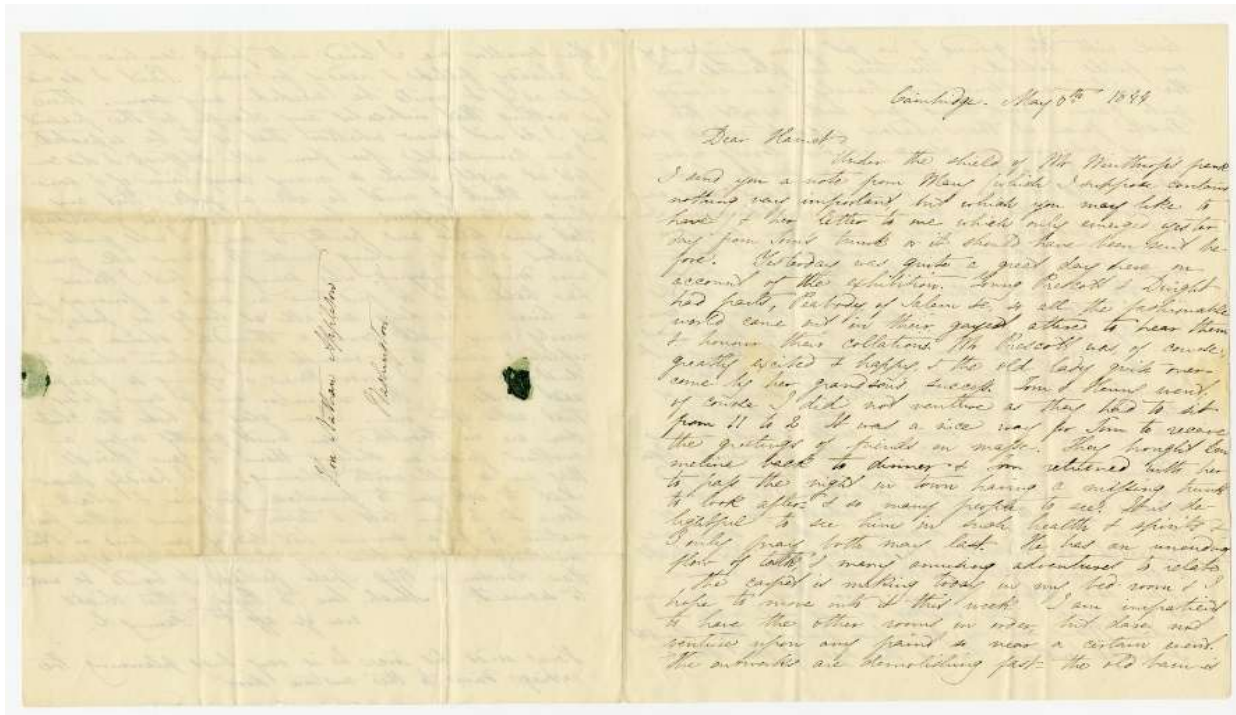 Hon Nathan Appleton
Washington.
Cambridge. May 8th 1844
Dear Harriet,
Under the shield of Mr Winthrop's frank
I send you a note from Mary (which I suppose contains
nothing very important but which you may like to
have) & her letter to me which only emerged yester
day from Tom's trunk or it should have been sent be-
fore. Yesterday was quite a great day here on
account of the exhibition. Young Prescott & Dwight
had parts, Peabody of Salem &c, so all the fashionable
world came out in their gayest attire to hear them
& honour their collations. Mr Prescott was of course,
greatly excited & happy, & the old lady quite over-
come by her grandson's success. Tom & Henry went,
of course I did not venture as they had to sit
from 11 to 2. It was a nice way for Tom to receive
the greetings of friends en masse. They brought Em
meline back to dinner & Tom returned with her
to pass the night in town having a missing trunk
to look after, & so many people to see. It is de
lightful to see him in such health & spirits &
I only pray both may last. He has an unending
flow of talk & many amusing adventures to relate
The carpet is making today in my bed room & I
hope to move into it this week. I am impatient
to have the other rooms in order, but dare not
venture upon any paint so near a certain event.
The outworks are demolishing fast - the old barn is